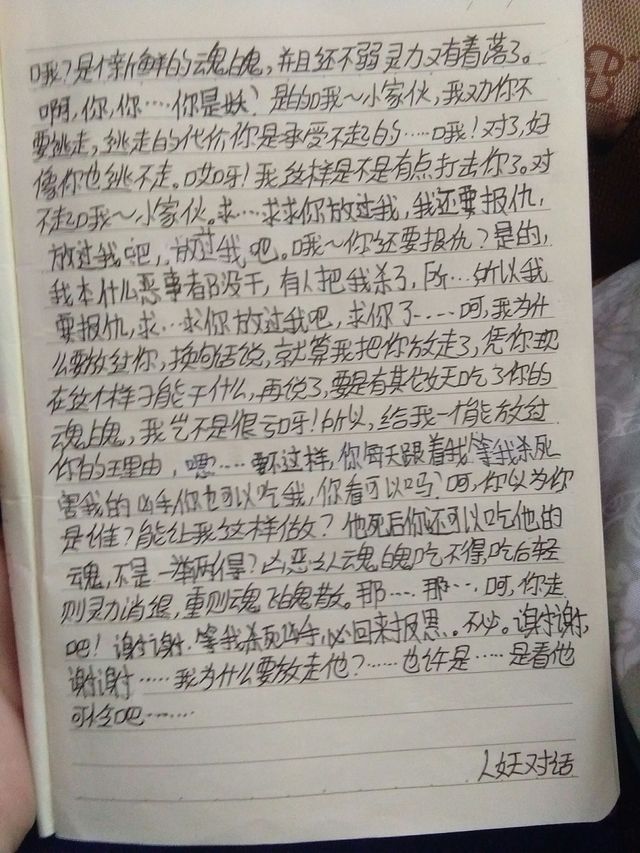 哦？是个新鲜的魂魄，并且还不弱灵力又有着落了。
啊，你，你……你是妖？是的哦～小家伙，我劝你不
要逃走，逃走的代价你是承受不起的……哦！对了，好
像你也逃不走。哎呀！我这样是不是有点打击你了。对
不起哦～小家伙。求…求求你放过我，我还要报仇，
放过我吧，放过我吧。哦～你还要报仇？是的，
我本什么恶事都没干，有人把我杀了，所…所以我
要报仇，求…求你放过我吧，求你了……呵，我为什
么要放过你，换句话说，就算我把你放走了，凭你现
在这个样子能干什么，再说了，要是有其他妖吃了你的
魂魄，我岂不是很亏呀！所以，给我一个能放过
你的理由，嗯……要不这样，你每天跟着我等我杀死
害我的凶手你也可以吃我，你看可以吗？呵，你以为你
是谁？能让我这样做？他死后你还可以吃他的
魂，不是一举两得？凶恶之人魂魄吃不得，吃后轻
则灵力消退，重则魂飞魄散。那……那…呵，你走
吧！谢谢谢，等我杀死凶手，必回来报恩。不必。谢谢，
谢谢……我为什么要放走他？……也许是……是看他
可怜吧……
人妖对话